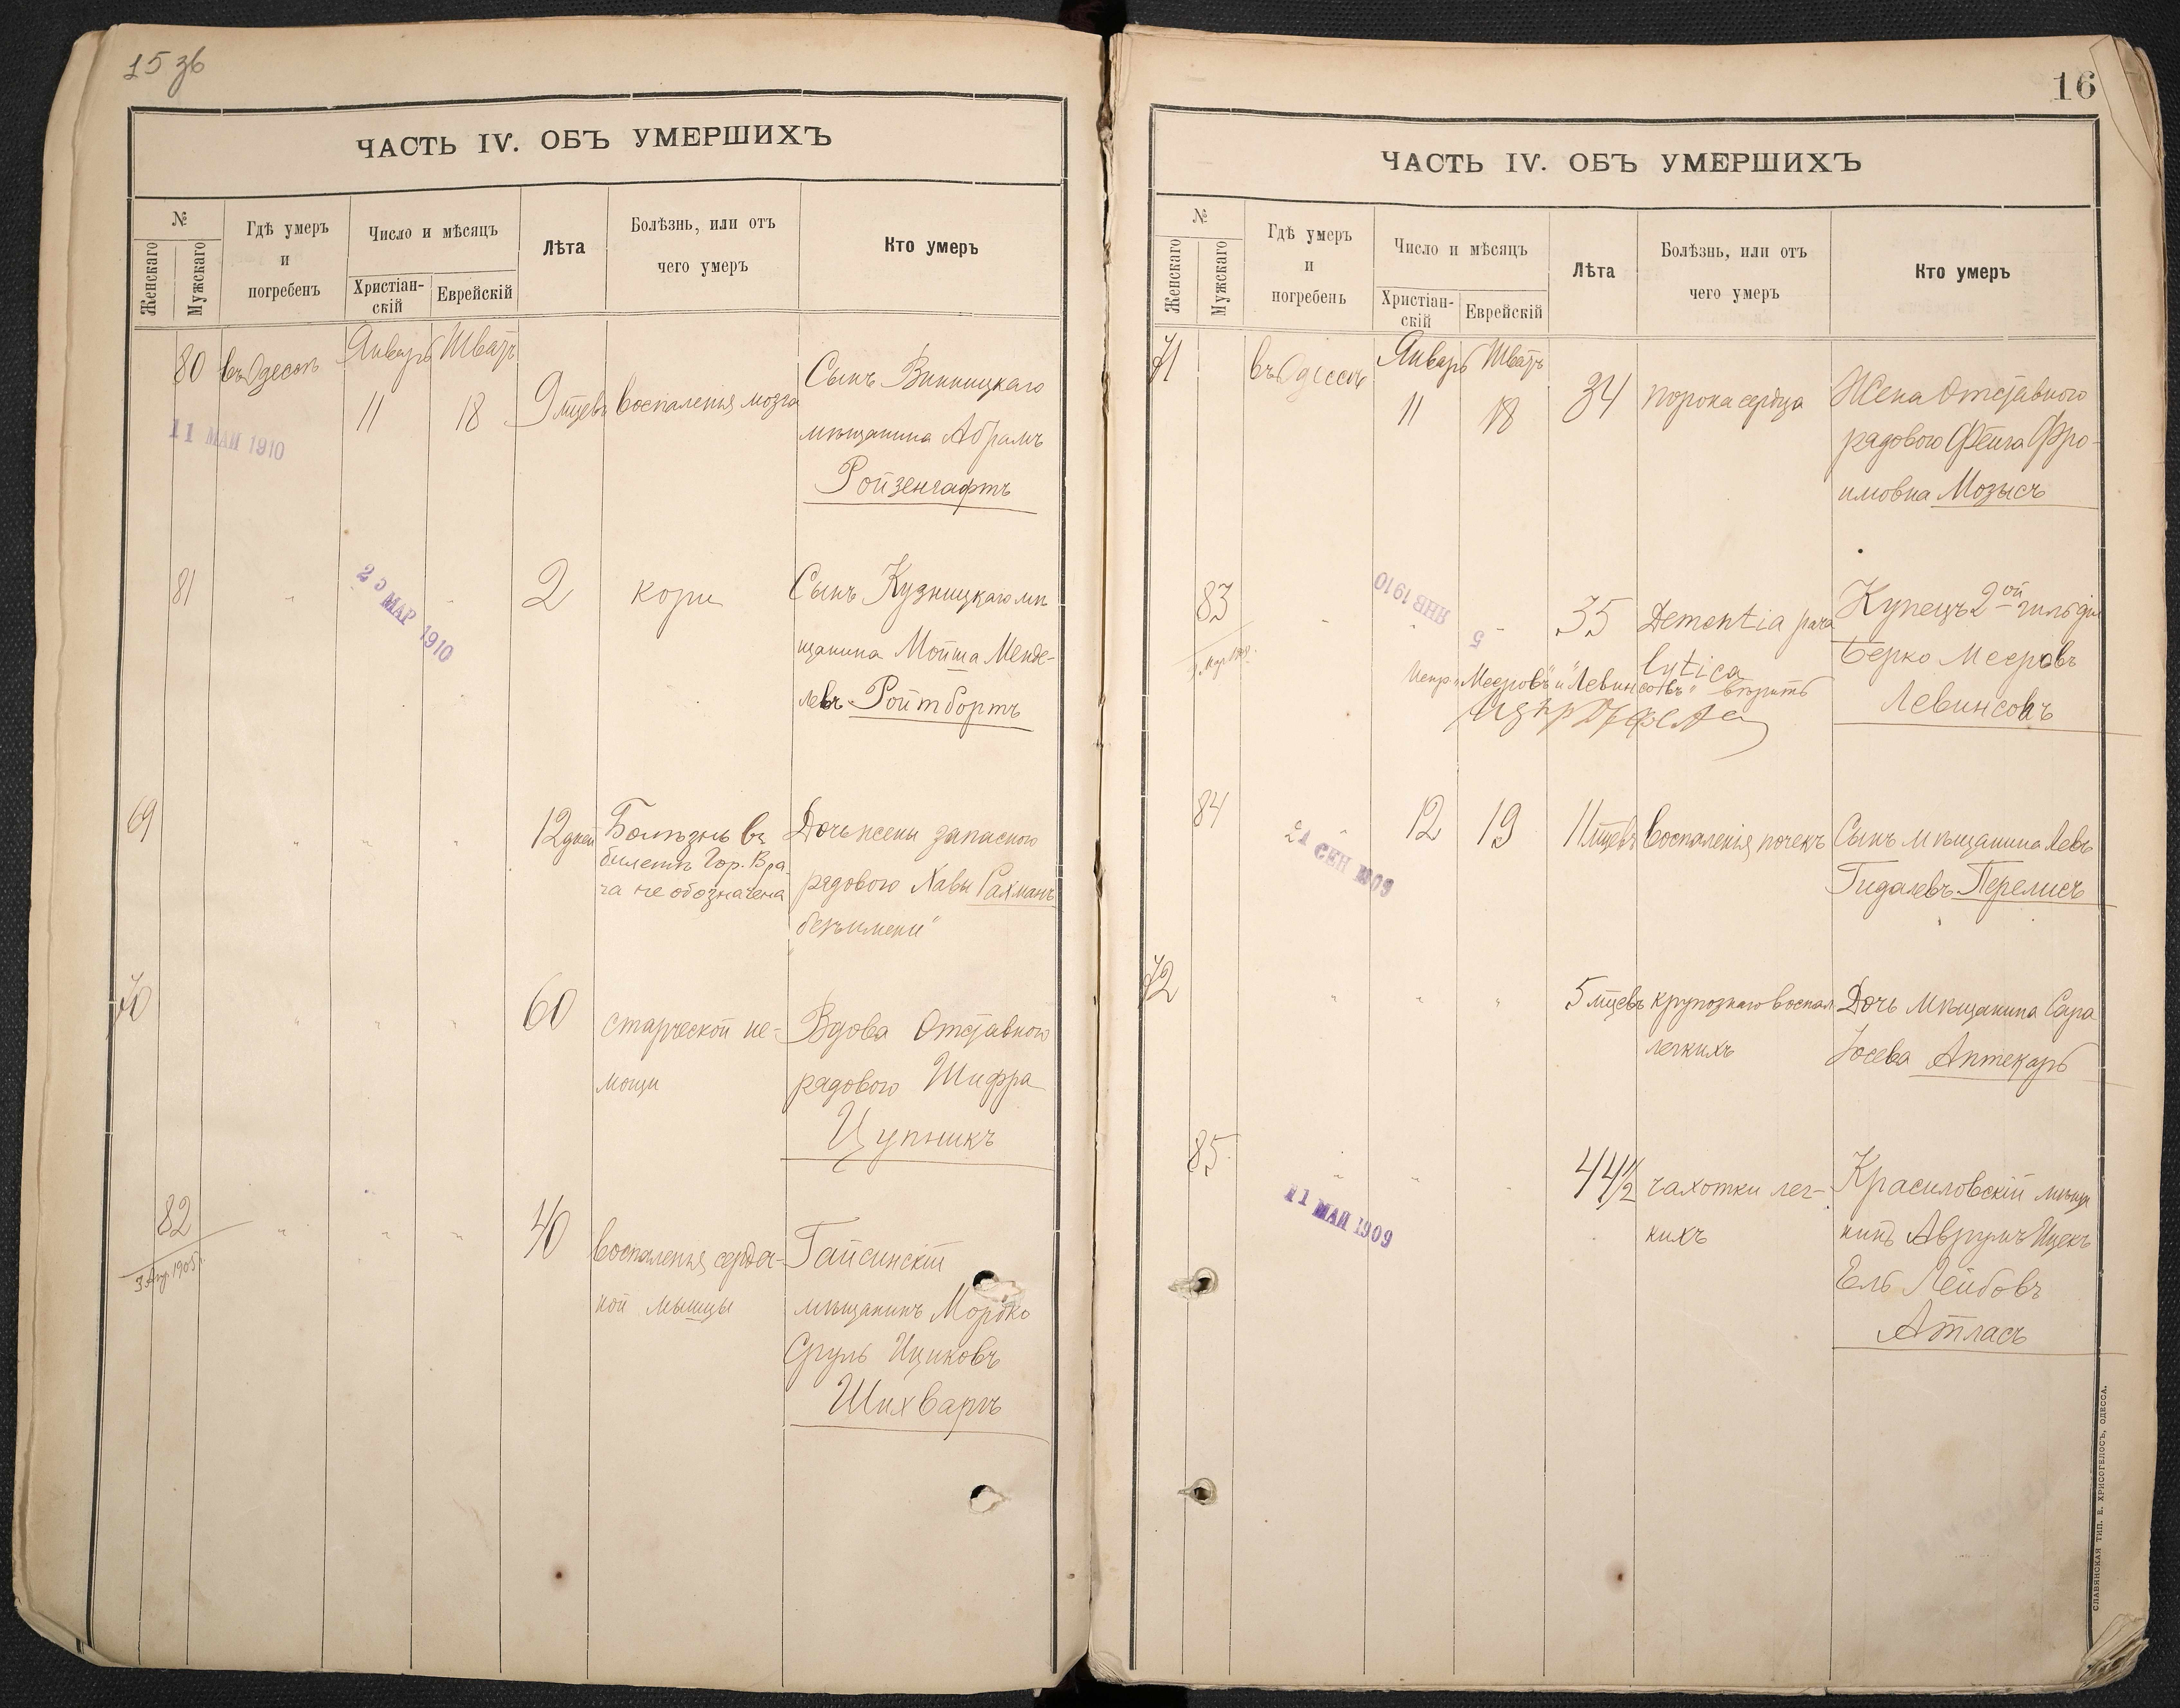 15 зв
ЧАСТЬ IV. ОБЪ УМЕРШИХЪ
№
Женскаго
Мужскаго
Гдѣ умеръ
и
погребенъ
Число и мѣсяцъ
Христіан-
скій
Еврейскій
Лѣта
Болѣзнь, или отъ
чего умеръ
Кто умеръ
80 въ Одессѣ Январь Шватъ
11 18 9 мцевъ воспаленія мозга Сынъ Винницкаго
мѣщанина Абрамъ
Ройзенгафтъ
11 МАЙ 1910
81 " " 2 кори Сынъ Кузницкаго мѣ
щанина Мойша Менде-
левъ Ройтбортъ
МАР 1910
69 " " " 12 дней Болѣзнь въ Дочь жены запасного
билетѣ Гор. Вра-
ча не обозначена рядового Хавы Рахманъ
безъ имени"
70 " " " 60 старческой не- Вдова Отставного
мощи рядового Шифра
Цупникъ
82 " " " 40 воспаленія сердеч- Гайсинскій
3 апр 1905 г.
ной мышцы мѣщанинъ Мордко
Сруль Ициковъ
Шихваргъ
16
ЧАСТЬ IV. ОБЪ УМЕРШИХЪ
№
Женскаго
Мужскаго
Гдѣ умеръ
и
погребенъ
Число и мѣсяцъ
Христіан-
скій
Еврейскій
Лѣта
Болѣзнь, или отъ
чего умеръ
Кто умеръ
71 въ Одессѣ Январь Шватъ
11 18 34 порока сердца Жена Отставного
рядового Фейга Фро-
имовна Мозысъ
83 " " " 35 Dementia para Купецъ 2ой гильдіи
lytica Берко Мееровъ
Левинсонъ
5 ЯНВ 1910
Испр. "Мееровъ" и "Левинсонъ" вѣрить
84 " 12 19 11 мцевъ воспаленія почекъ Сынъ мѣщанина Левъ
Гидалевъ Перелисъ
21 СЕН 1909
72 " " " 5 мцевъ крупознаго воспал. Дочь мѣщанина Сара
легкихъ Іосева Аптекарь
85 " " " 44 1/2 чахотки лег- Красиловскій мѣща
кихъ нинъ Аврумъ Ицекъ
Ель Лейбовъ
Атласъ
11 МАЙ 1909
СЛАВЯНСКАЯ ТИП. Е. ХРИСОГЕЛОСЪ, ОДЕССА.